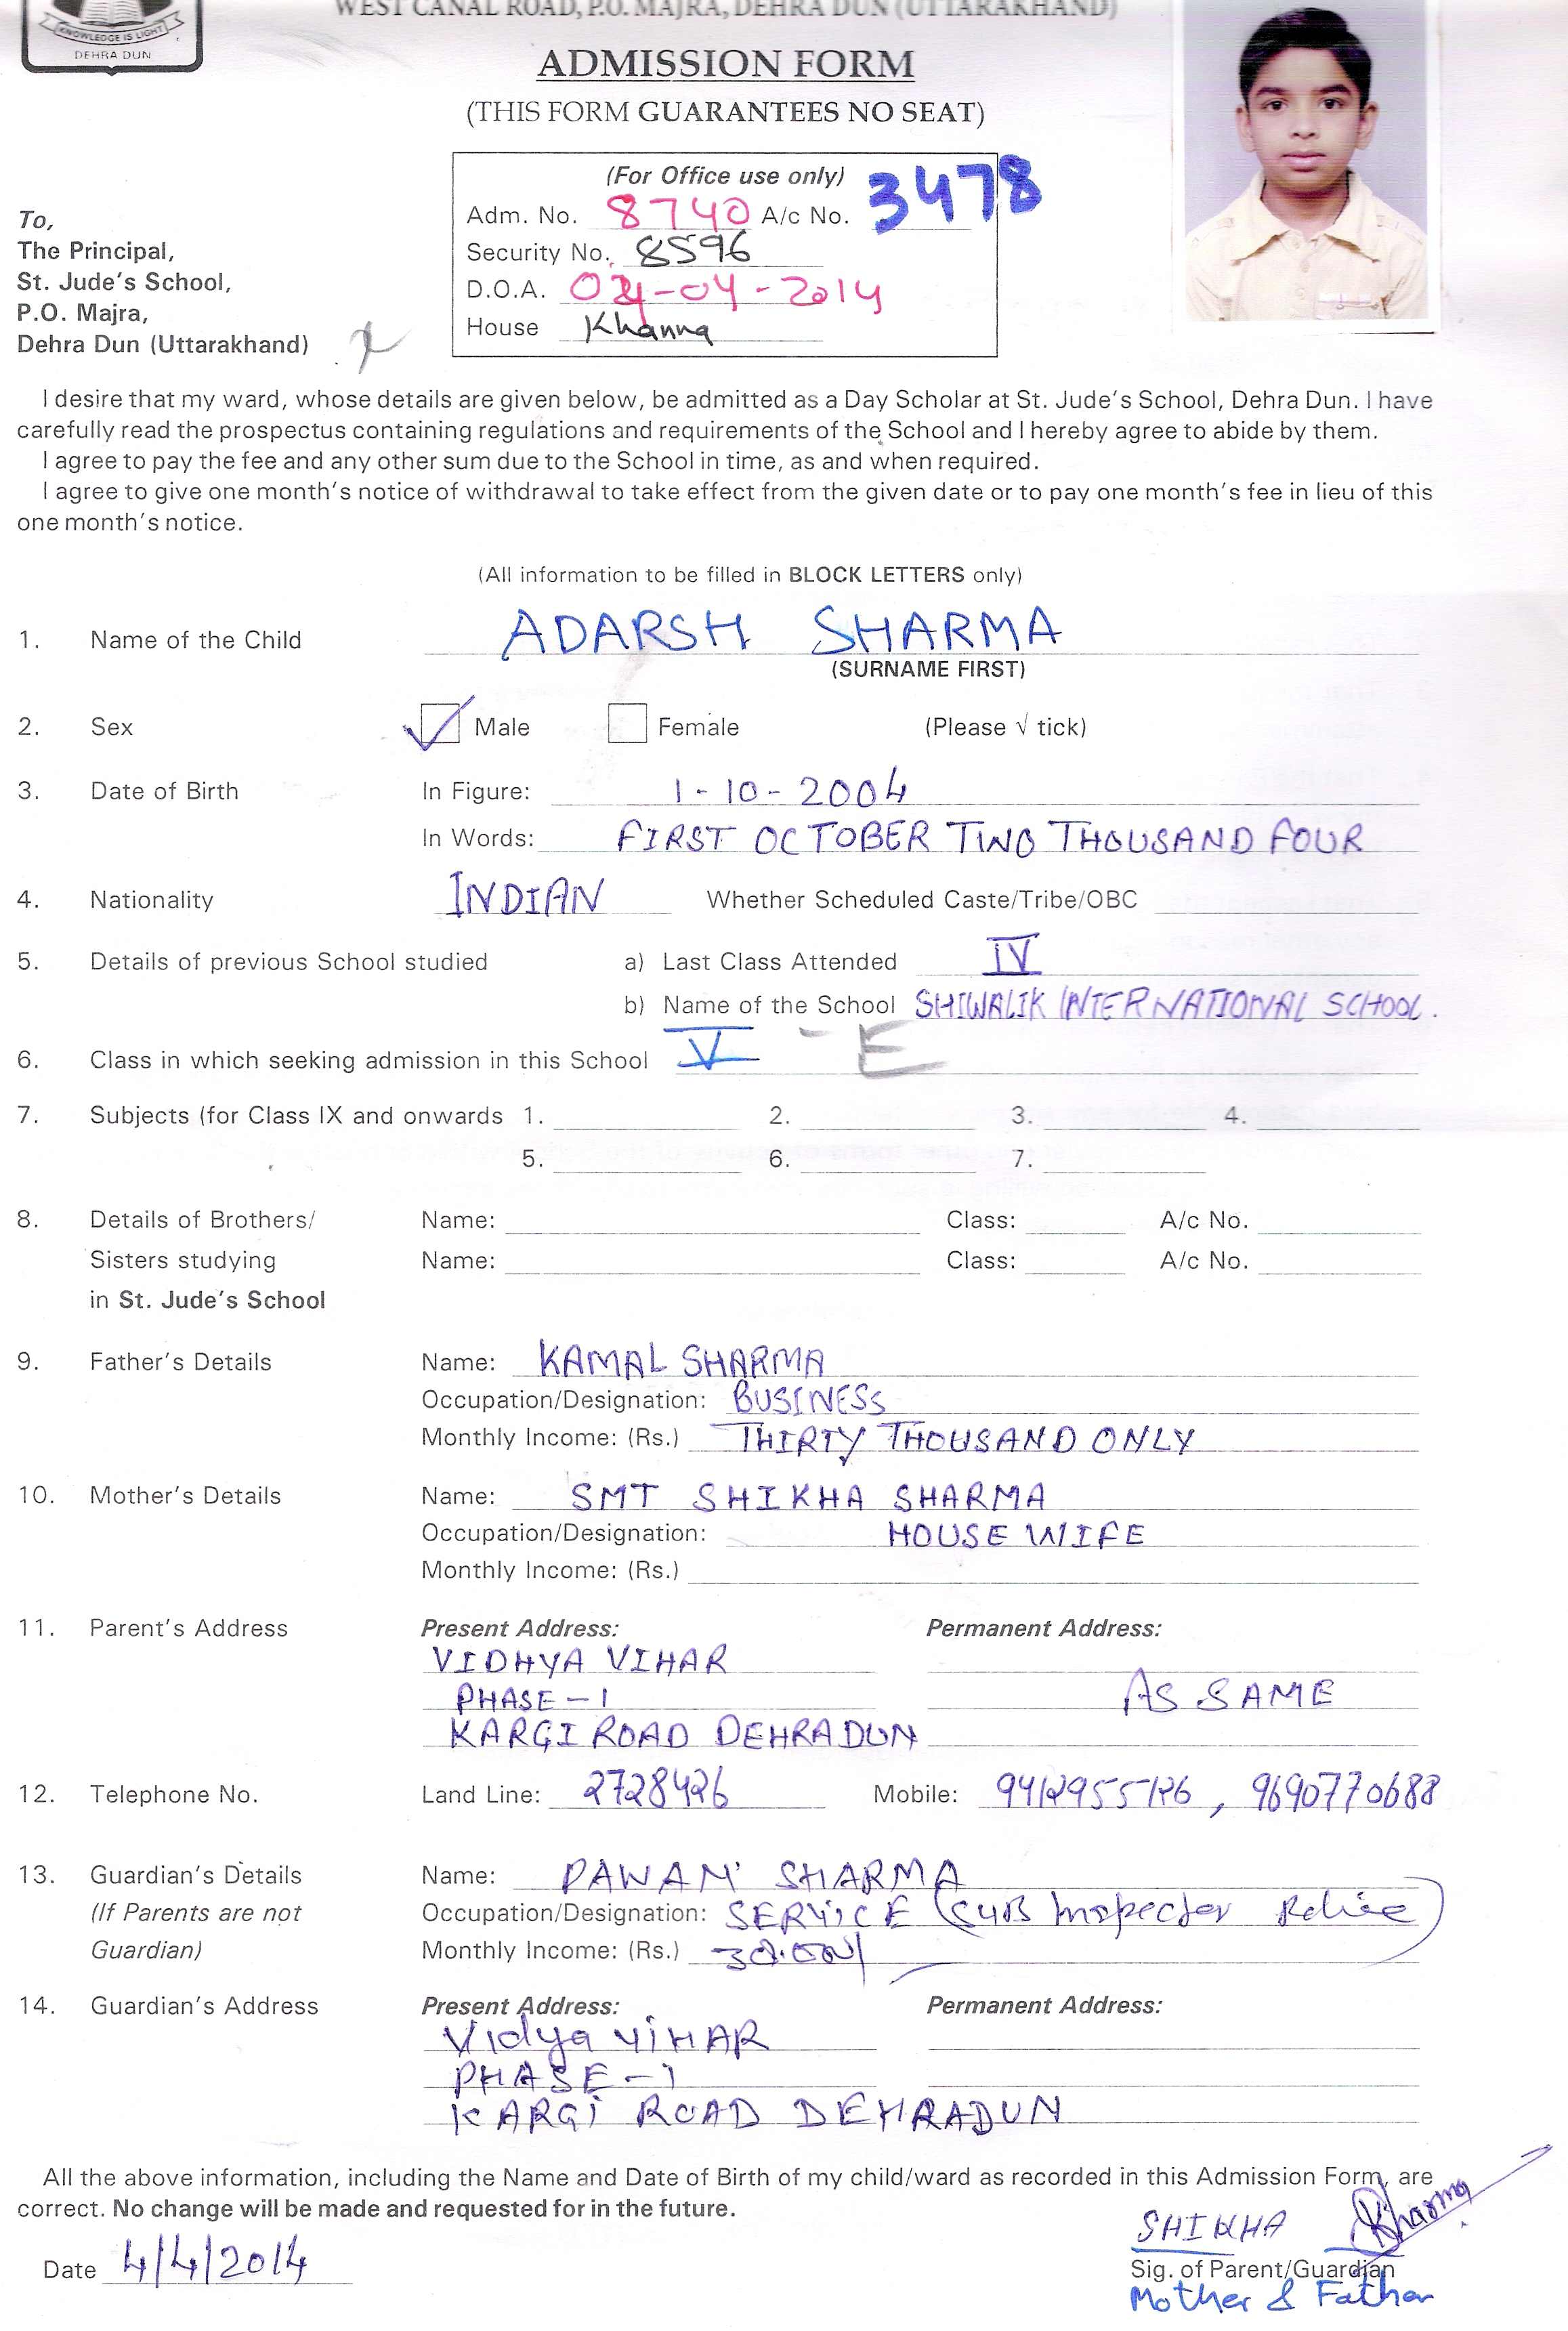 WEST CANAL ROAD, P.O. MAJRA, DEHRA DUN (UTTARAKHAND)
KNOWLEDGE IS LIGHT
DEHRA DUN
ADMISSION FORM
(THIS FORM GUARANTEES NO SEAT)
(For Office use only)
Adm. No. 8740 A/c No. 3478
Security No. 8596
D.O.A. 04-04-2014
House Khanna
To,
The Principal,
St. Jude's School,
P.O. Majra,
Dehra Dun (Uttarakhand)
I desire that my ward, whose details are given below, be admitted as a Day Scholar at St. Jude's School, Dehra Dun. I have
carefully read the prospectus containing regulations and requirements of the School and I hereby agree to abide by them.
I agree to pay the fee and any other sum due to the School in time, as and when required.
I agree to give one month's notice of withdrawal to take effect from the given date or to pay one month's fee in lieu of this
one month's notice.
(All information to be filled in BLOCK LETTERS only)
1. Name of the Child ADARSH SHARMA
(SURNAME FIRST)
2. Sex Male Female (Please √ tick)
3. Date of Birth In Figure: 1-10-2004
In Words: FIRST OCTOBER TWO THOUSAND FOUR
4. Nationality INDIAN Whether Scheduled Caste/Tribe/OBC
5. Details of previous School studied a) Last Class Attended IV
b) Name of the School SHIWALIK INTERNATIONAL SCHOOL.
6. Class in which seeking admission in this School V - E
7. Subjects (for Class IX and onwards 1. 2. 3. 4.
5. 6. 7.
8. Details of Brothers/ Name: Class: A/c No.
Sisters studying Name: Class: A/c No.
in St. Jude's School
9. Father's Details Name: KAMAL SHARMA
Occupation/Designation: BUSINESS
Monthly Income: (Rs.) THIRTY THOUSAND ONLY
10. Mother's Details Name: SMT SHIKHA SHARMA
Occupation/Designation: HOUSE WIFE
Monthly Income: (Rs.)
11. Parent's Address Present Address: Permanent Address:
VIDHYA VIHAR
PHASE-1 AS SAME
KARGI ROAD DEHRADUN
12. Telephone No. Land Line: 2728426 Mobile: 9412955126, 9690770688
13. Guardian's Details Name: PAWAN SHARMA
(If Parents are not Occupation/Designation: SERVICE (SUB Inspector Police)
Guardian) Monthly Income: (Rs.)
14. Guardian's Address Present Address: Permanent Address:
Vidya viHAR
PHASE-1
KARGi ROAD DEHRADUN
All the above information, including the Name and Date of Birth of my child/ward as recorded in this Admission Form, are
correct. No change will be made and requested for in the future.
SHIKHA KSharma
Date 4/4/2014 Sig. of Parent/Guardian
Mother & Father